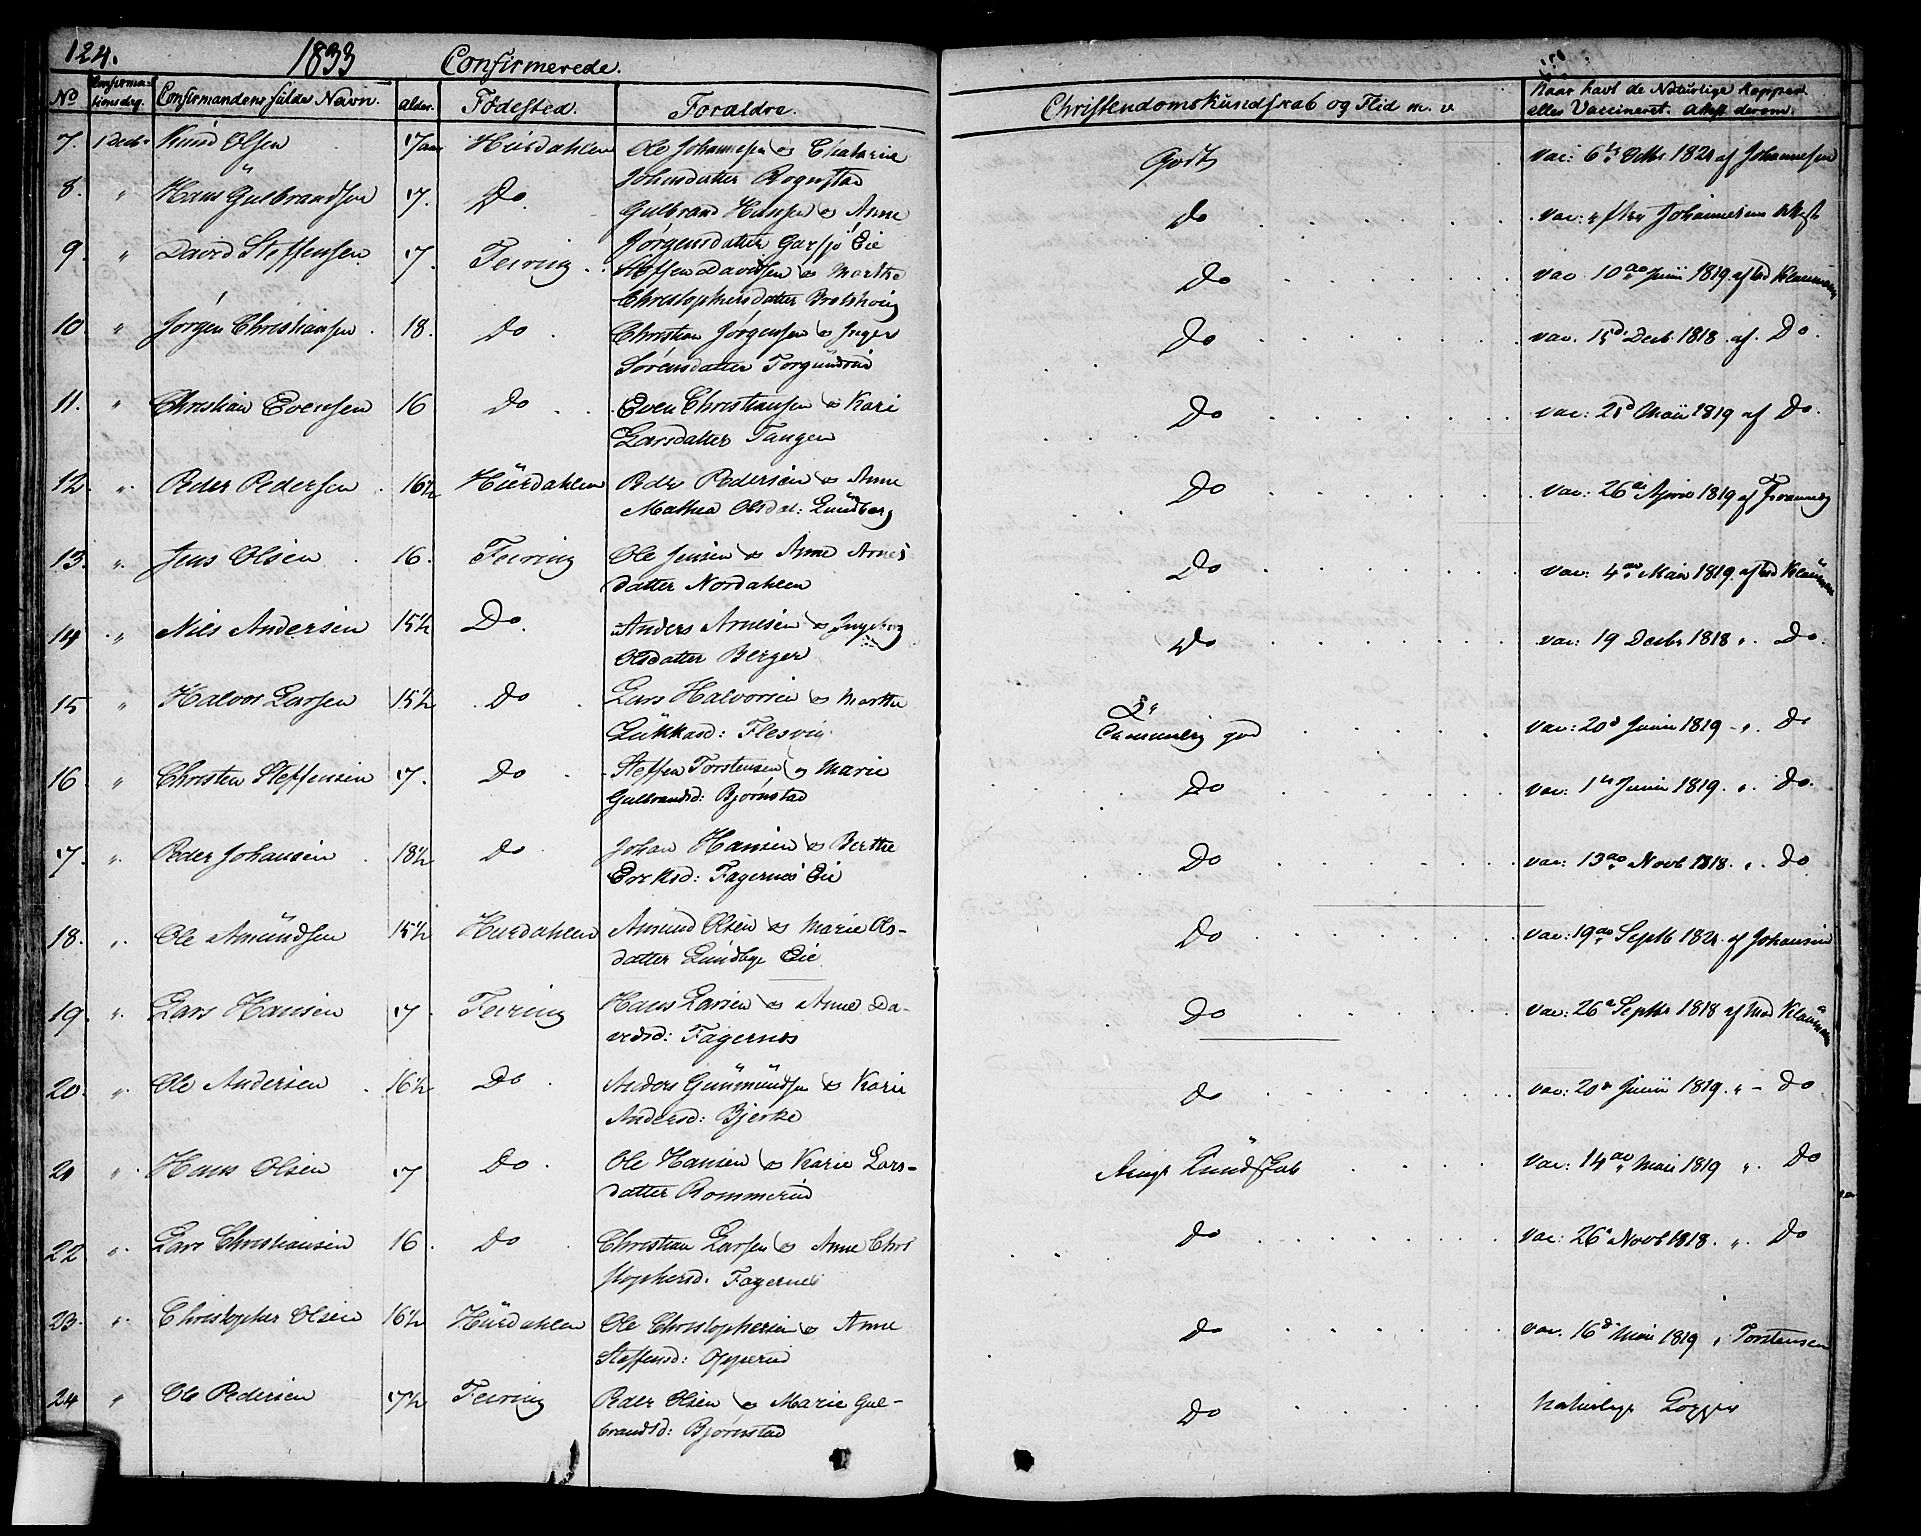 124. 1833 Confirmerede.
No Confirmationsdag. Confirmandens fulde Navn. alder. Fødested. Foraldre. Christendomskundskab og Flid m. v Naar havt de Naturlige kopper
eller Vaccineret. Attest derom.
7. 1 Decb. Knud Olsen 17 aar Hürdahlen Ole Johannesen og
Johnsdatter Rognstad Godt vac: 6te Octbr 1821 af Johannesen
8. " Hans Gulbrandsen 17. Do Gulbrand Hansen og Anne
Jørgensdatter Garsjø Eie Do vac: Johannesens Attest
9. " David Steffensen 17. Feiring Steffen Davidsen og Marthe
Christophersdatter Do vac 10de Junii 1819 af Md Klaumann
10. " Jørgen Christiansen 18. Do Christian Jørgensen og Inger
Sørensdatter Torgundrud Do vac. 15d Decb. 1818 af. Do.
11. " Christian Evensen 16 Do Even Christiansen og Kari
Larsdatter Tangen Do vac: 25d Maii 1819 af Do.
12. " Peder Pedersen 16½ Hürdahlen Peder Pedersen og Anne
Mathea Olsdat: Lundberg Do vac: 26de April 1819 af
13. " Jens Olsen 16. Feiring Ole Jensen og Anne Arnes
datter Nordahlen Do vac: 4de Maii 1819 af Md Klaumann
14 " Nils Andersen 15½ Do. Anders Arnesen og Ingeborg
Olsdatter Berger Do vac: 19 Decbr 1818 " Do.
15 " Halvor Larsen 15½ Do Lars Halvorsen og Marthe
Lükkasd: Flesvig Temmelig god vac: 20d Junii 1819 - " Do
16 " Christen Steffensen 17. Do Steffen Torstensen og Marie
Gulbrandsd: Bjørnstad Do vac: 1te Junii 1819. " Do.
17. " Peder Johansen 18½ Do Johan Hansen og Berthe
Eriksd: Fagernes Eie Do vac: 13de Novb 1818. " Do
18. " Ole Amündsen 15½ Hurdahlen Amund Olsen og Marie Ols-
datter Lundbye Eie Do vac: 19de Septb 1821. af Johansen
19. " Lars Hansen 17. Feiring Hans Larsen og Anne Da-
vidsd: Fagernes Do vac: 26de Septbr 1818 af Md Klaumann
20. " Ole Andersen 16½ Do Anders Gunmündsen og Karie
Andersd: Bjerke Do vac: 20de Junii 1819. " - Do
21 " Hans Olsen 17 Do Ole Hansen og Karie Lars-
datter Rommerud Ringe Kundskab vac: 14de Maii 1819 " Do
22 " Lars Christiansen 16. Do Christian Larsen og Anne Chri
stophersd. Fagernes Do vac: 26de Novb 1818. " Do
23. " Christopher Olsen 16½ Hürdahlen Ole Christophersen og Anne
Steffensd: Opperud Do vac. 16d Maii 1819 " Torstensen
24 " Ole Pedersen 17½ Feiring Peder Olsen og Marie Gul-
brandsd: Bjørnstad Do Naturlige Kopper